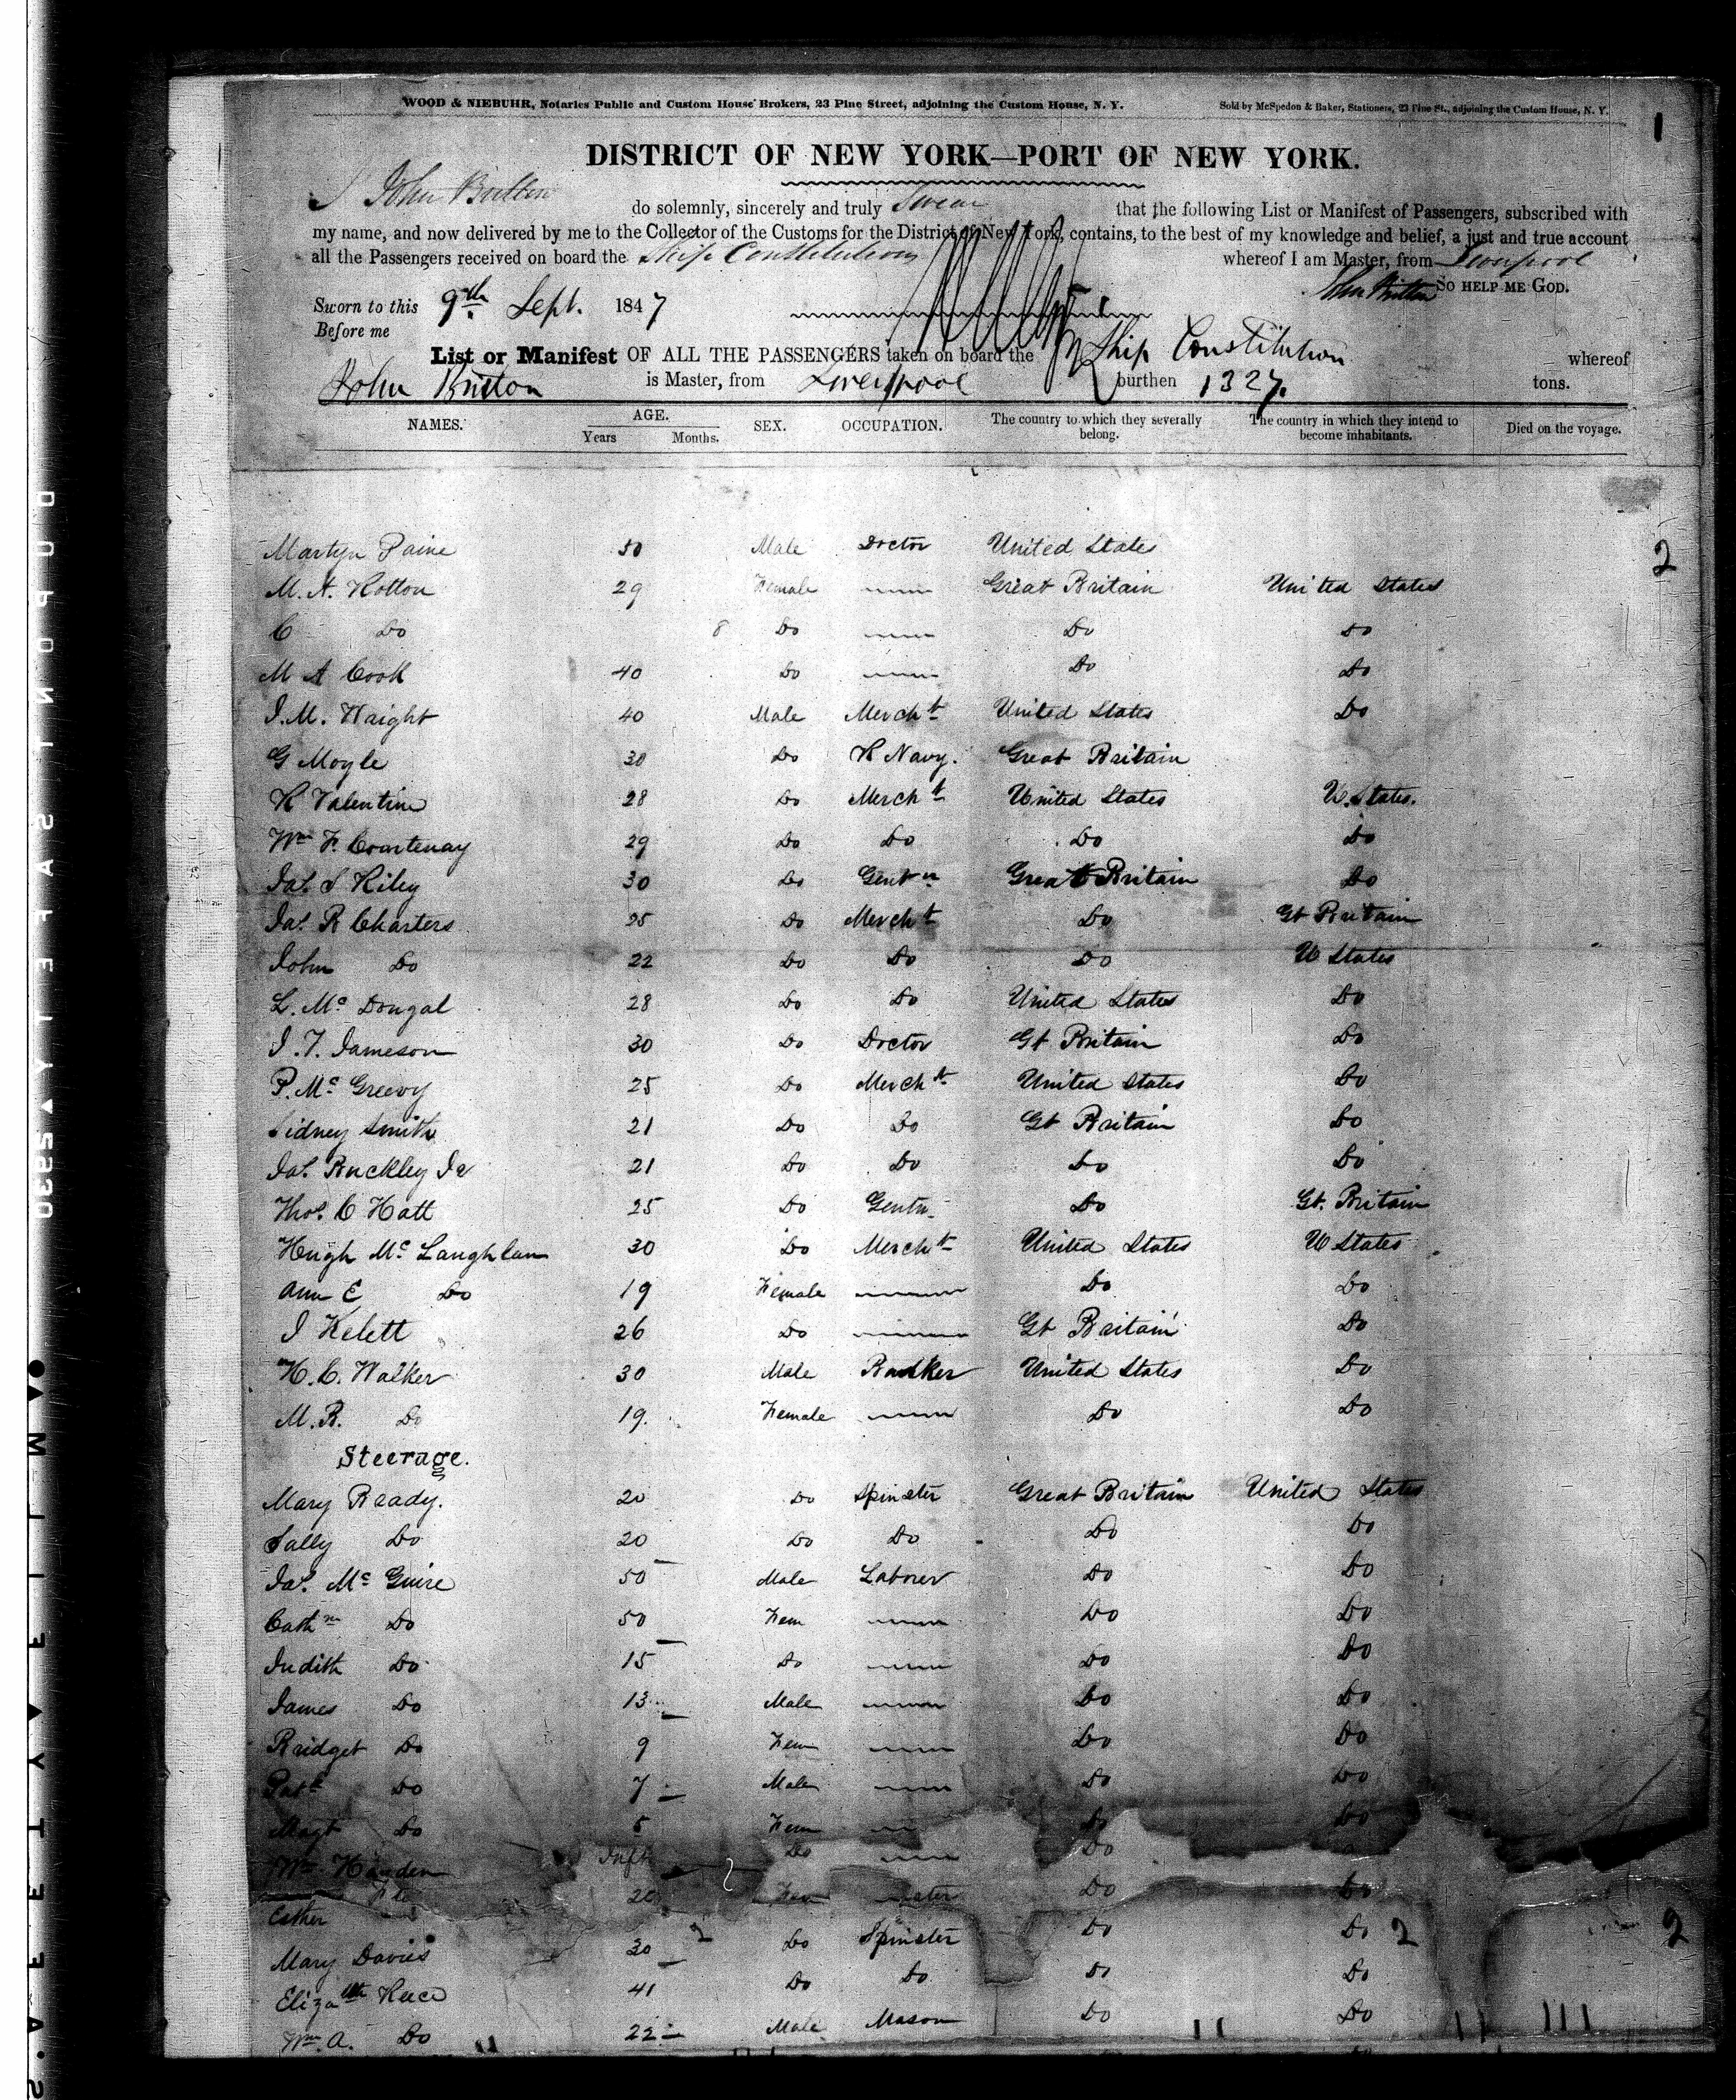 WOOD & NIEBUHR, Notaries Public and Custom House Brokers, 23 Pine Street, adjoining the Custom House, N. Y. Sold by McSpedon & Baker, Stationers, 23 Pine St., adjoining the Custom House, N. Y.
1
DISTRICT OF NEW YORK—PORT OF NEW YORK.
I John Britton do solemnly, sincerely and truly Swear that the following List or Manifest of Passengers, subscribed with
my name, and now delivered by me to the Collector of the Customs for the District of New York, contains, to the best of my knowledge and belief, a just and true account
all the Passengers received on board the Ship Constitution whereof I am Master, from Liverpool
John Britton SO HELP ME GOD.
Sworn to this 9th Sept. 1847
Before me
List or Manifest OF ALL THE PASSENGERS taken on board the Ship Constitution whereof
John Britton is Master, from Liverpool burthen 1327. tons.
NAMES. AGE. Years Months. SEX. OCCUPATION. The country to which they severally belong. The country in which they intend to become inhabitants. Died on the voyage.
Martyn Paine 50 Male Doctor United States
2
M. A. Hotton 29 Female Great Britain United States
C Do 8 Do Do Do
M A Cook 40 Do Do Do
J. M. Haight 40 Male Mercht United States Do
G Moyle 30 Do R Navy. Great Britain
R Valentine 28 Do Mercht United States U. States.
Wm F. Courtenay 29 Do Do Do Do
Jas. S Riley 30 Do Gentn Great Britain Do
Jas. R Charters 25 Do Mercht Do Gt Britain
John Do 22 Do Do Do U States
L. Mc Dougal 28 Do Do United States Do
J. T. Jameson 30 Do Doctor Gt Britain Do
P. Mc Greevy 25 Do Mercht United States Do
Sidney Smith 21 Do Do Gt Britain Do
Jas. Buckley Jr 21 Do Do Do Do
Thos. C Hatt 25 Do Gentn Do Gt. Britain
Hugh Mc Laughlan 30 Do Mercht United States U States
Ann E Do 19 Female Do Do
J Kelett 26 Do Gt Britain Do
H. C. Walker 30 Male Banker United States Do
M. R. Do 19. Female Do Do
Steerage.
Mary Ready. 20 Do Spinster Great Britain United States
Sally Do 20 Do Do Do Do
Jas. Mc Guire 50 Male Laborer Do Do
Cathn Do 50 Fem Do Do
Judith Do 15 Do Do Do
James Do 13 Male Do Do
Bridget Do 9 Fem Do Do
Patk Do 7 Male Do Do
Magt Do 5 Fem Do Do
Wm Inft Do Do
Esther 20 Fem Do Do
Mary Davies 30 Do Spinster Do Do 2 2
Elizath Do 41 Do Do Do Do
Wm. A. Do 22 Male Mason Do Do